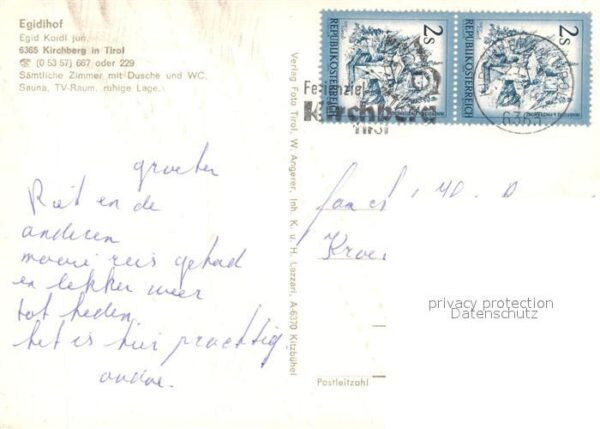 Egidihof
Egid Koidl jun.
6365 Kirchberg in Tirol
☎ (0 53 57) 667 oder 229
Sämtliche Zimmer mit Dusche und WC,
Sauna, TV-Raum, ruhige Lage.
groeten
Riet en de
anderen
mooie reis gehad
en lekker weer
tot heden
het is hier prachtig
Verlag Foto Tirol, W. Angerer, Inh. K. u. H. Lazzari, A-6370 Kitzbühel
2s
REPUBLIK ÖSTERREICH
2s
REPUBLIK ÖSTERREICH
Kirchberg
TIROL
6365
privacy protection
Datenschutz
Postleitzahl